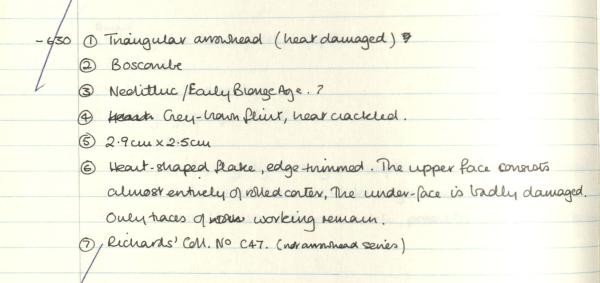 -630 ① Triangular arrowhead (heat damaged) ?
② Boscombe
③ Neolithic/Early Bronze Age. ?
④ Grey-brown flint, heat crackled.
⑤ 2.9cm x 2.5cm
⑥ Heart-shaped flake, edge-trimmed. The upper face consists
almost entirely of rolled cortex, The under-face is badly damaged.
Only traces of working remain.
⑦ Richards' Coll. No C47. (not arrowhead series)